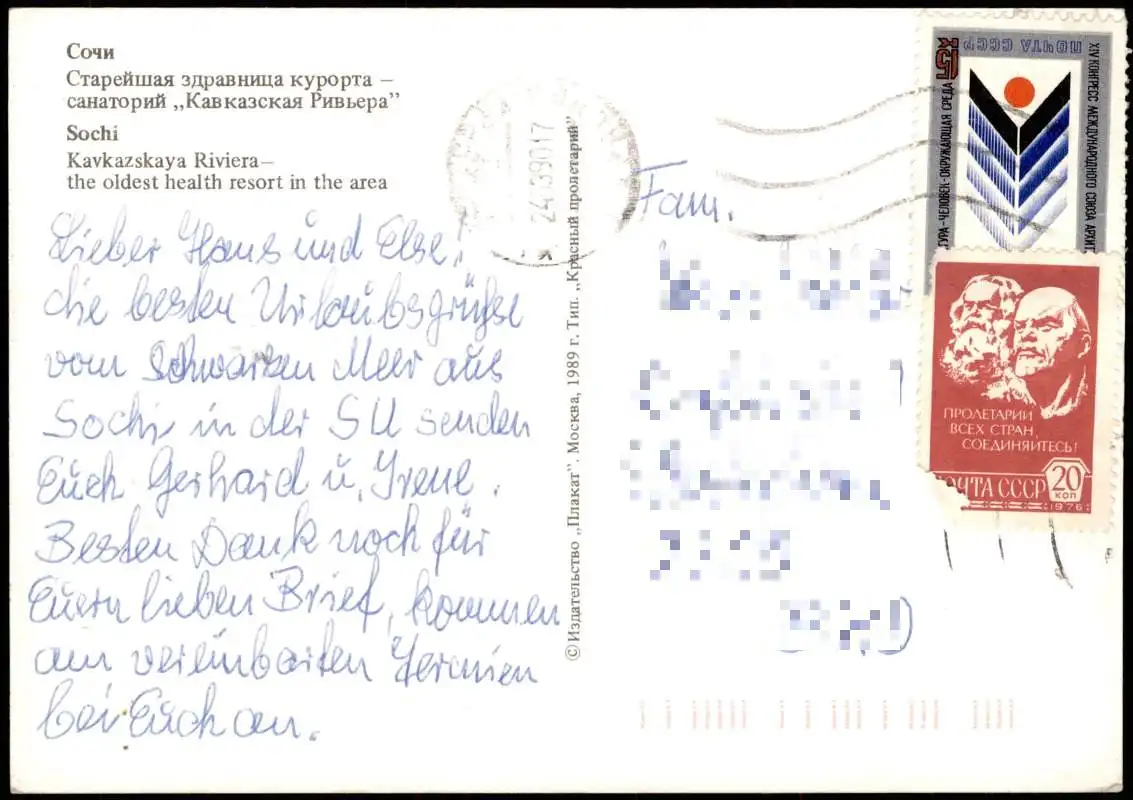 Сочи
Старейшая здравница курорта –
санаторий „Кавказская Ривьера”
Sochi
Kavkazskaya Riviera–
the oldest health resort in the area
Lieber Hans und Else!
die besten Urlaubsgrüße
vom Schwarzen Meer aus
Sochi in der SU senden
Euch Gerhard u. Irene.
Besten Dank noch für
Euern lieben Brief, kommen
am vereinbarten Termin
bei Euch an.
© Издательство „Плакат”. Москва, 1989 г. Тип. „Красный пролетарий”
2439017
Fam.
ПОЧТА СССР
15к
XIV КОНГРЕСС МЕЖДУНАРОДНОГО СОЮЗА АРХИТ
ТУРА-ЧЕЛОВЕК-ОКРУЖАЮЩАЯ СРЕДА
ПРОЛЕТАРИИ
ВСЕХ СТРАН,
СОЕДИНЯЙТЕСЬ!
ПОЧТА СССР
20
КОП
1976